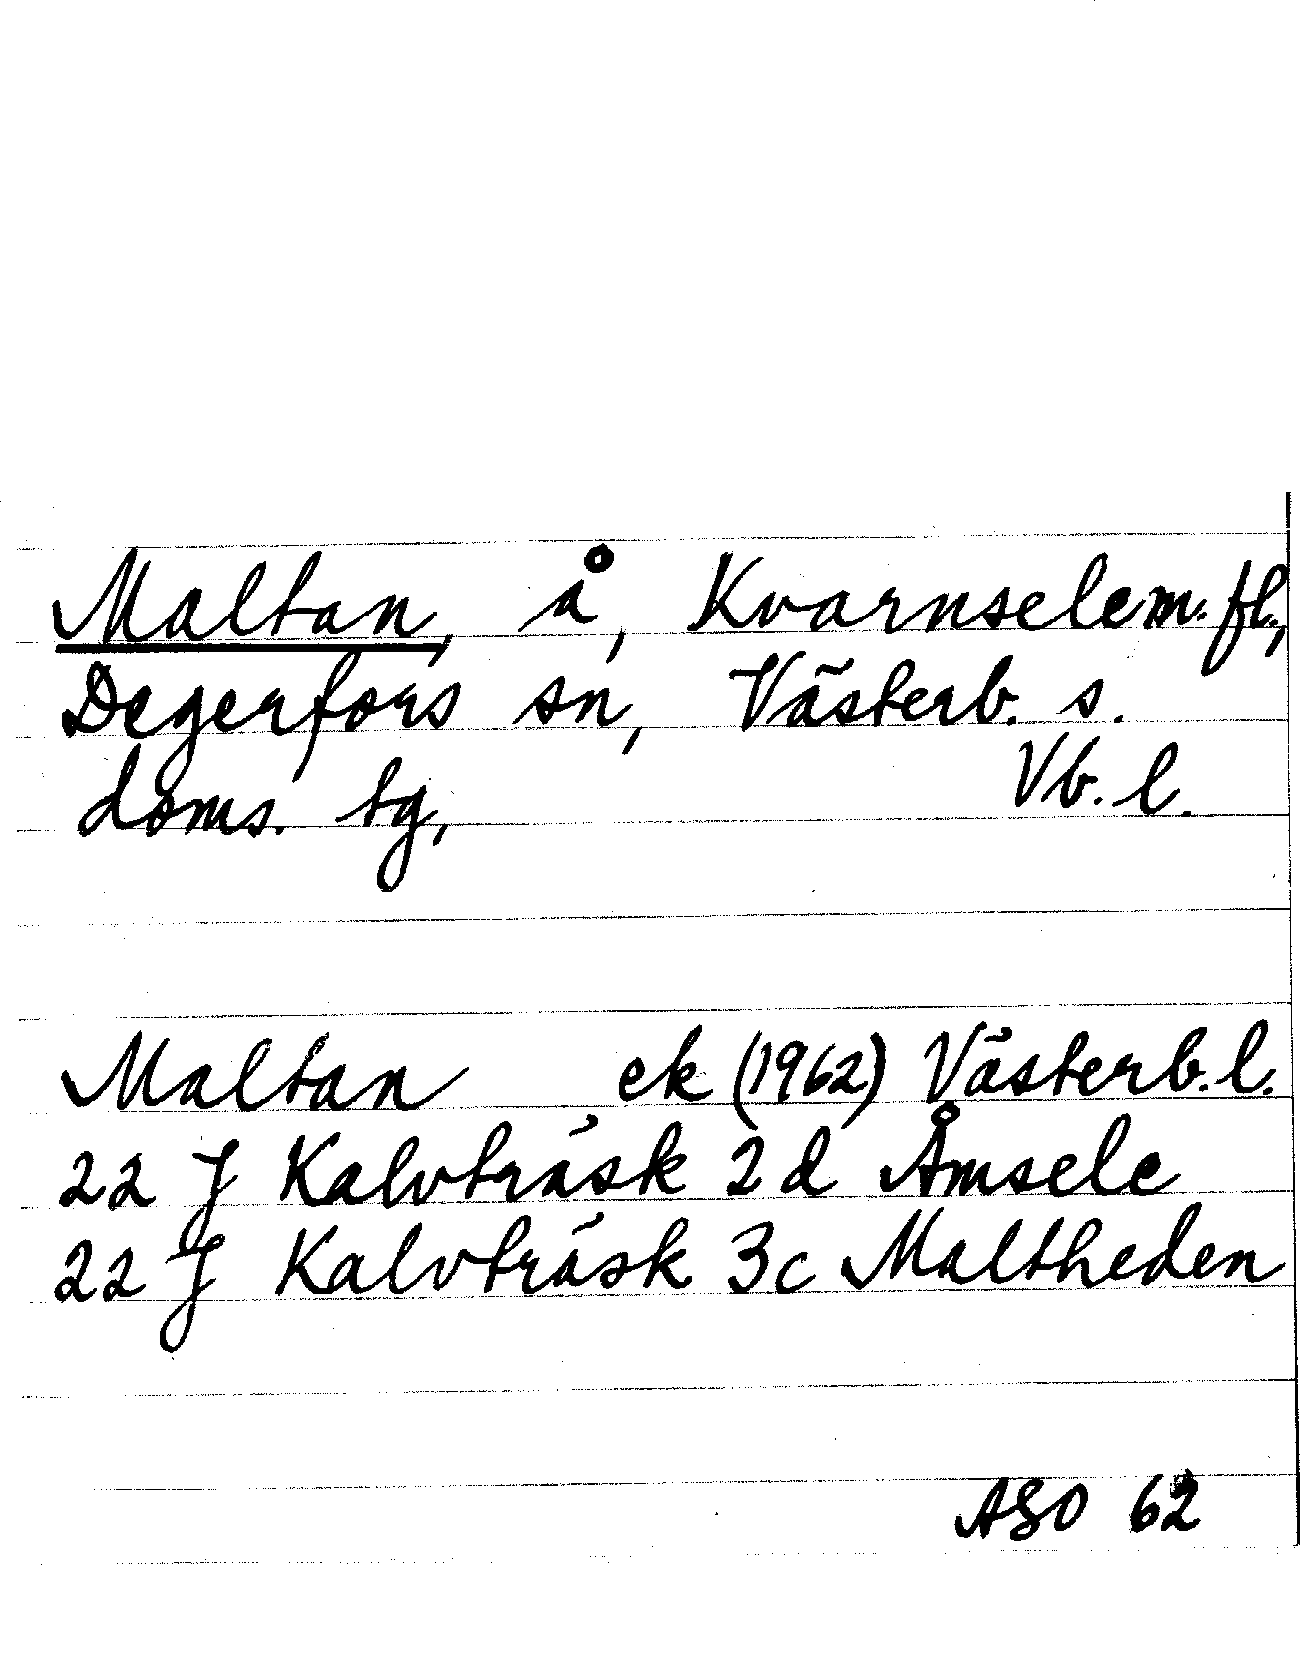 Maltan, å, Kvarnsele m. fl.,
Degerfors sn, Västerb. s.
doms. tg, Vb. l.
Maltan ek (1962) Västerb. l.
22 J Kalvträsk 2 d Åmsele
22 J Kalvträsk 3c Maltheden
ASO 62